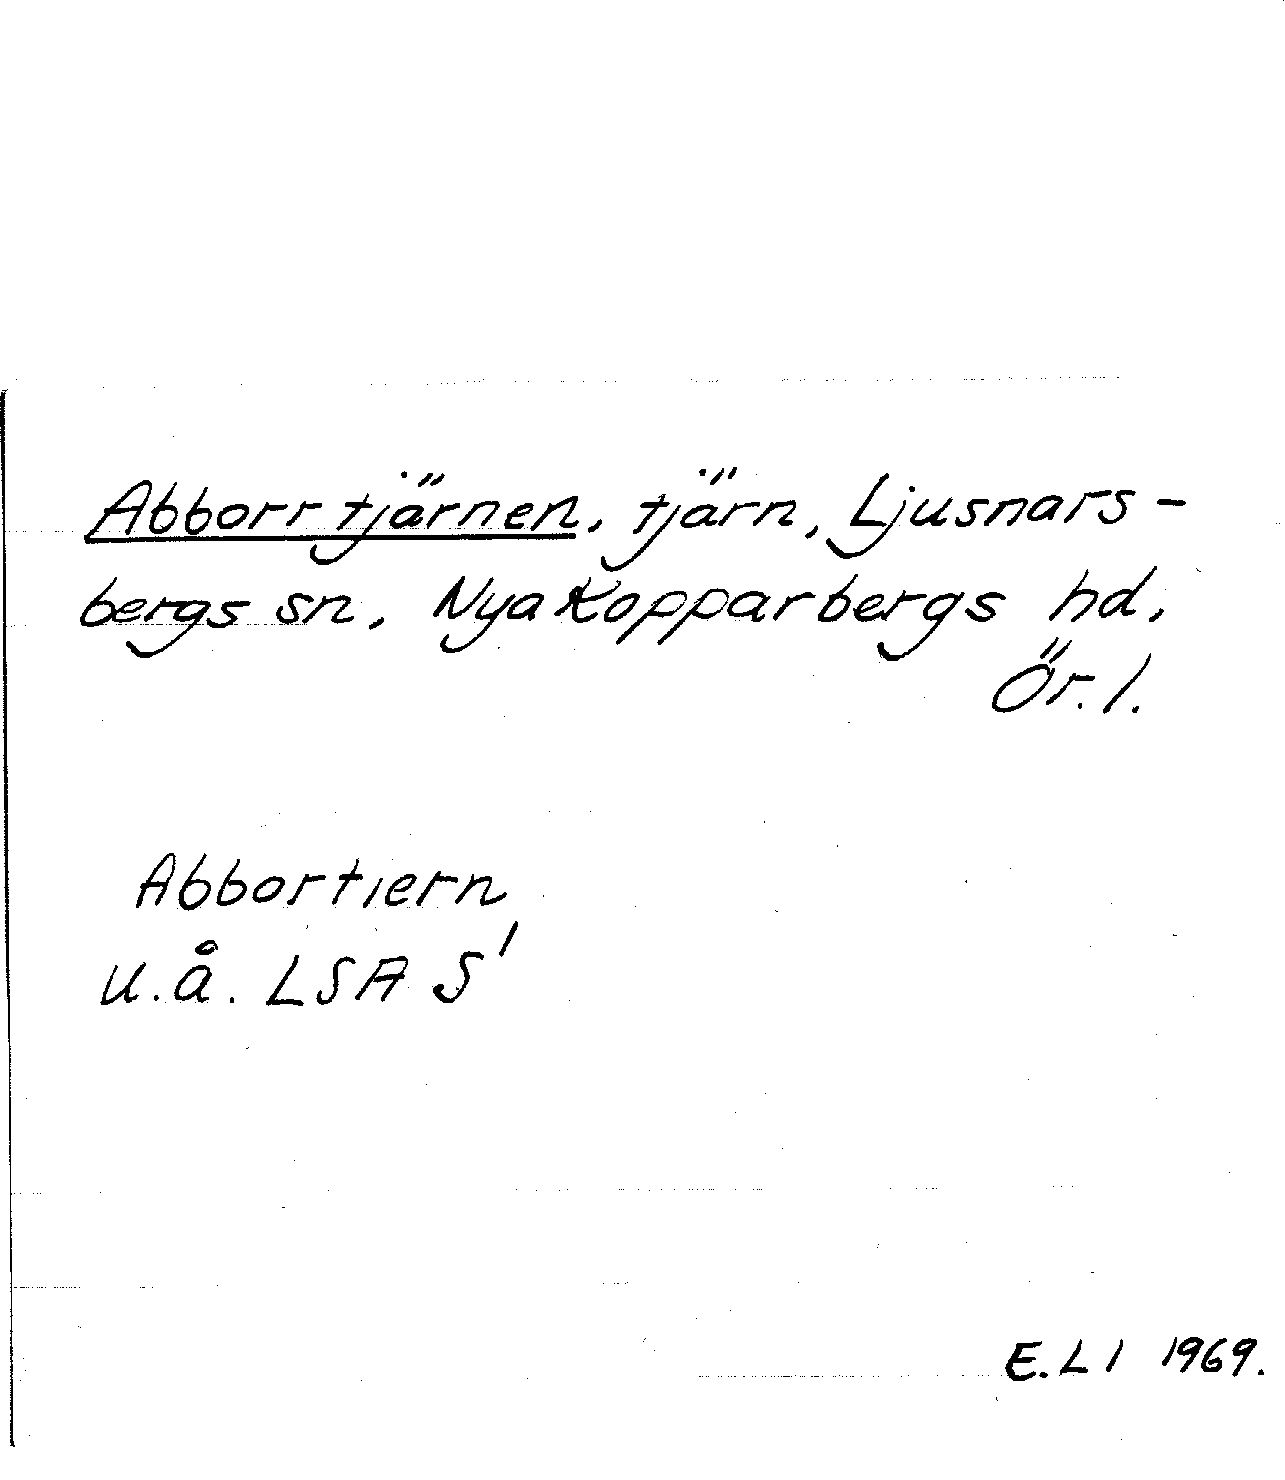 Abborrtjärnen, tjärn, Ljusnars-
bergs sn, Nya Kopparbergs hd,
Ör. l.
Abbortiern
u.å. LSA S¹
E. L l 1969.